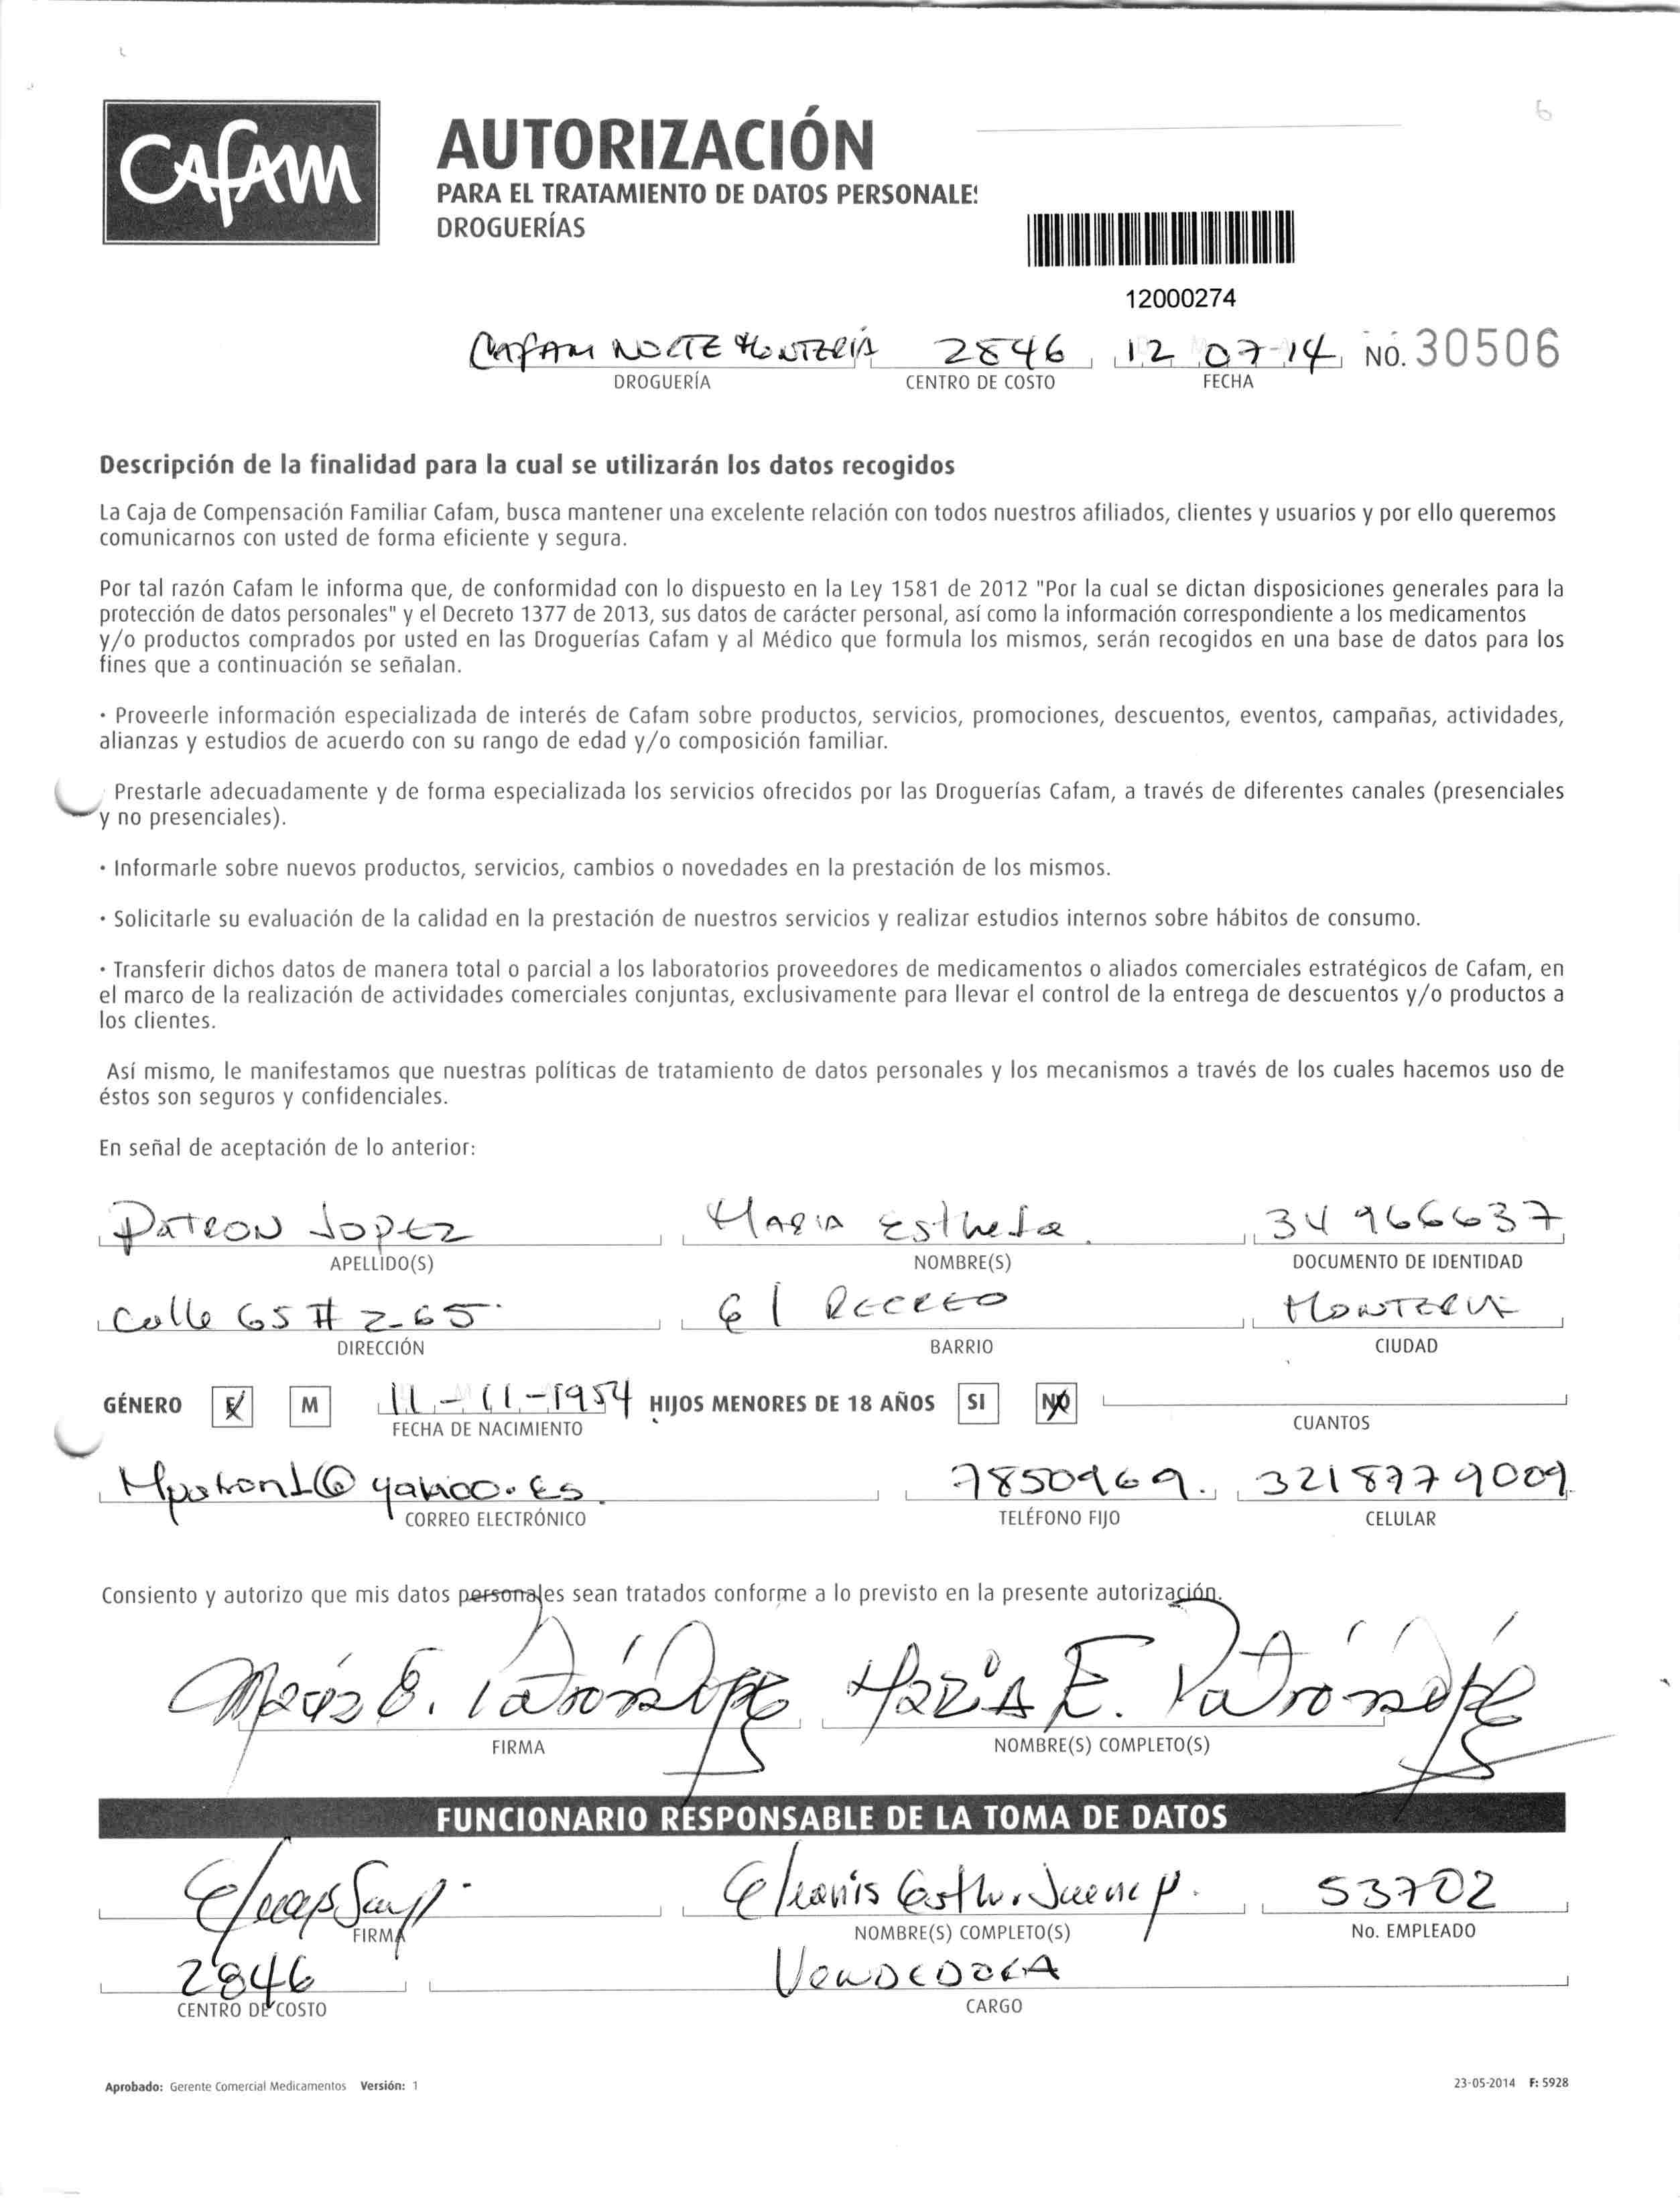 Cafam
AUTORIZACIÓN
PARA EL TRATAMIENTO DE DATOS PERSONALE
DROGUERÍAS
12000274
CAFAM NORTE MONTERIA 2846 12 07-14 NO. 30506
DROGUERÍA CENTRO DE COSTO FECHA
Descripción de la finalidad para la cual se utilizarán los datos recogidos
La Caja de Compensación Familiar Cafam, busca mantener una excelente relación con todos nuestros afiliados, clientes y usuarios y por ello queremos
comunicarnos con usted de forma eficiente y segura.
Por tal razón Cafam le informa que, de conformidad con lo dispuesto en la Ley 1581 de 2012 "Por la cual se dictan disposiciones generales para la
protección de datos personales" y el Decreto 1377 de 2013, sus datos de carácter personal, así como la información correspondiente a los medicamentos
y/o productos comprados por usted en las Droguerías Cafam y al Médico que formula los mismos, serán recogidos en una base de datos para los
fines que a continuación se señalan.
· Proveerle información especializada de interés de Cafam sobre productos, servicios, promociones, descuentos, eventos, campañas, actividades,
alianzas y estudios de acuerdo con su rango de edad y/o composición familiar.
Prestarle adecuadamente y de forma especializada los servicios ofrecidos por las Droguerías Cafam, a través de diferentes canales (presenciales
y no presenciales).
· Informarle sobre nuevos productos, servicios, cambios o novedades en la prestación de los mismos.
· Solicitarle su evaluación de la calidad en la prestación de nuestros servicios y realizar estudios internos sobre hábitos de consumo.
· Transferir dichos datos de manera total o parcial a los laboratorios proveedores de medicamentos o aliados comerciales estratégicos de Cafam, en
el marco de la realización de actividades comerciales conjuntas, exclusivamente para llevar el control de la entrega de descuentos y/o productos a
los clientes.
Así mismo, le manifestamos que nuestras políticas de tratamiento de datos personales y los mecanismos a través de los cuales hacemos uso de
éstos son seguros y confidenciales.
En señal de aceptación de lo anterior:
PATRON LOPEZ MARIA Esthela 34966637
APELLIDO(S) NOMBRE(S) DOCUMENTO DE IDENTIDAD
Calle 65 # 2-65 El RECREO MONTERIA
DIRECCIÓN BARRIO CIUDAD
GÉNERO F M 11-11-1954 HIJOS MENORES DE 18 AÑOS SI NO
FECHA DE NACIMIENTO CUANTOS
Mpatron1@yahoo.es 7850969. 3218779009
CORREO ELECTRÓNICO TELÉFONO FIJO CELULAR
Consiento y autorizo que mis datos personales sean tratados conforme a lo previsto en la presente autorización.
María E. Patrón López MARÍA E. Patrón López
FIRMA NOMBRE(S) COMPLETO(S)
FUNCIONARIO RESPONSABLE DE LA TOMA DE DATOS
53702
FIRMA NOMBRE(S) COMPLETO(S) No. EMPLEADO
2846 VENDEDORA
CENTRO DE COSTO CARGO
Aprobado: Gerente Comercial Medicamentos Versión: 1 23-05-2014 F: 5928